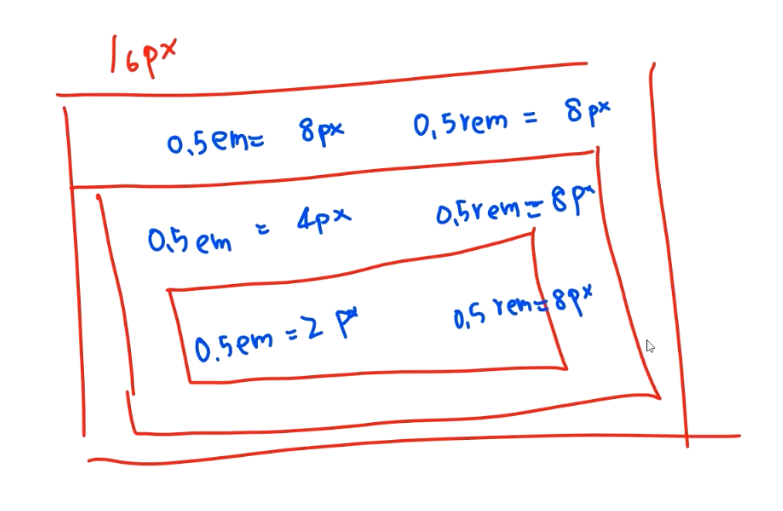 16px
0.5em= 8px 0,5rem = 8px
0.5em = 4px 0,5rem= 8px
0.5em = 2 px 0,5 rem=8px